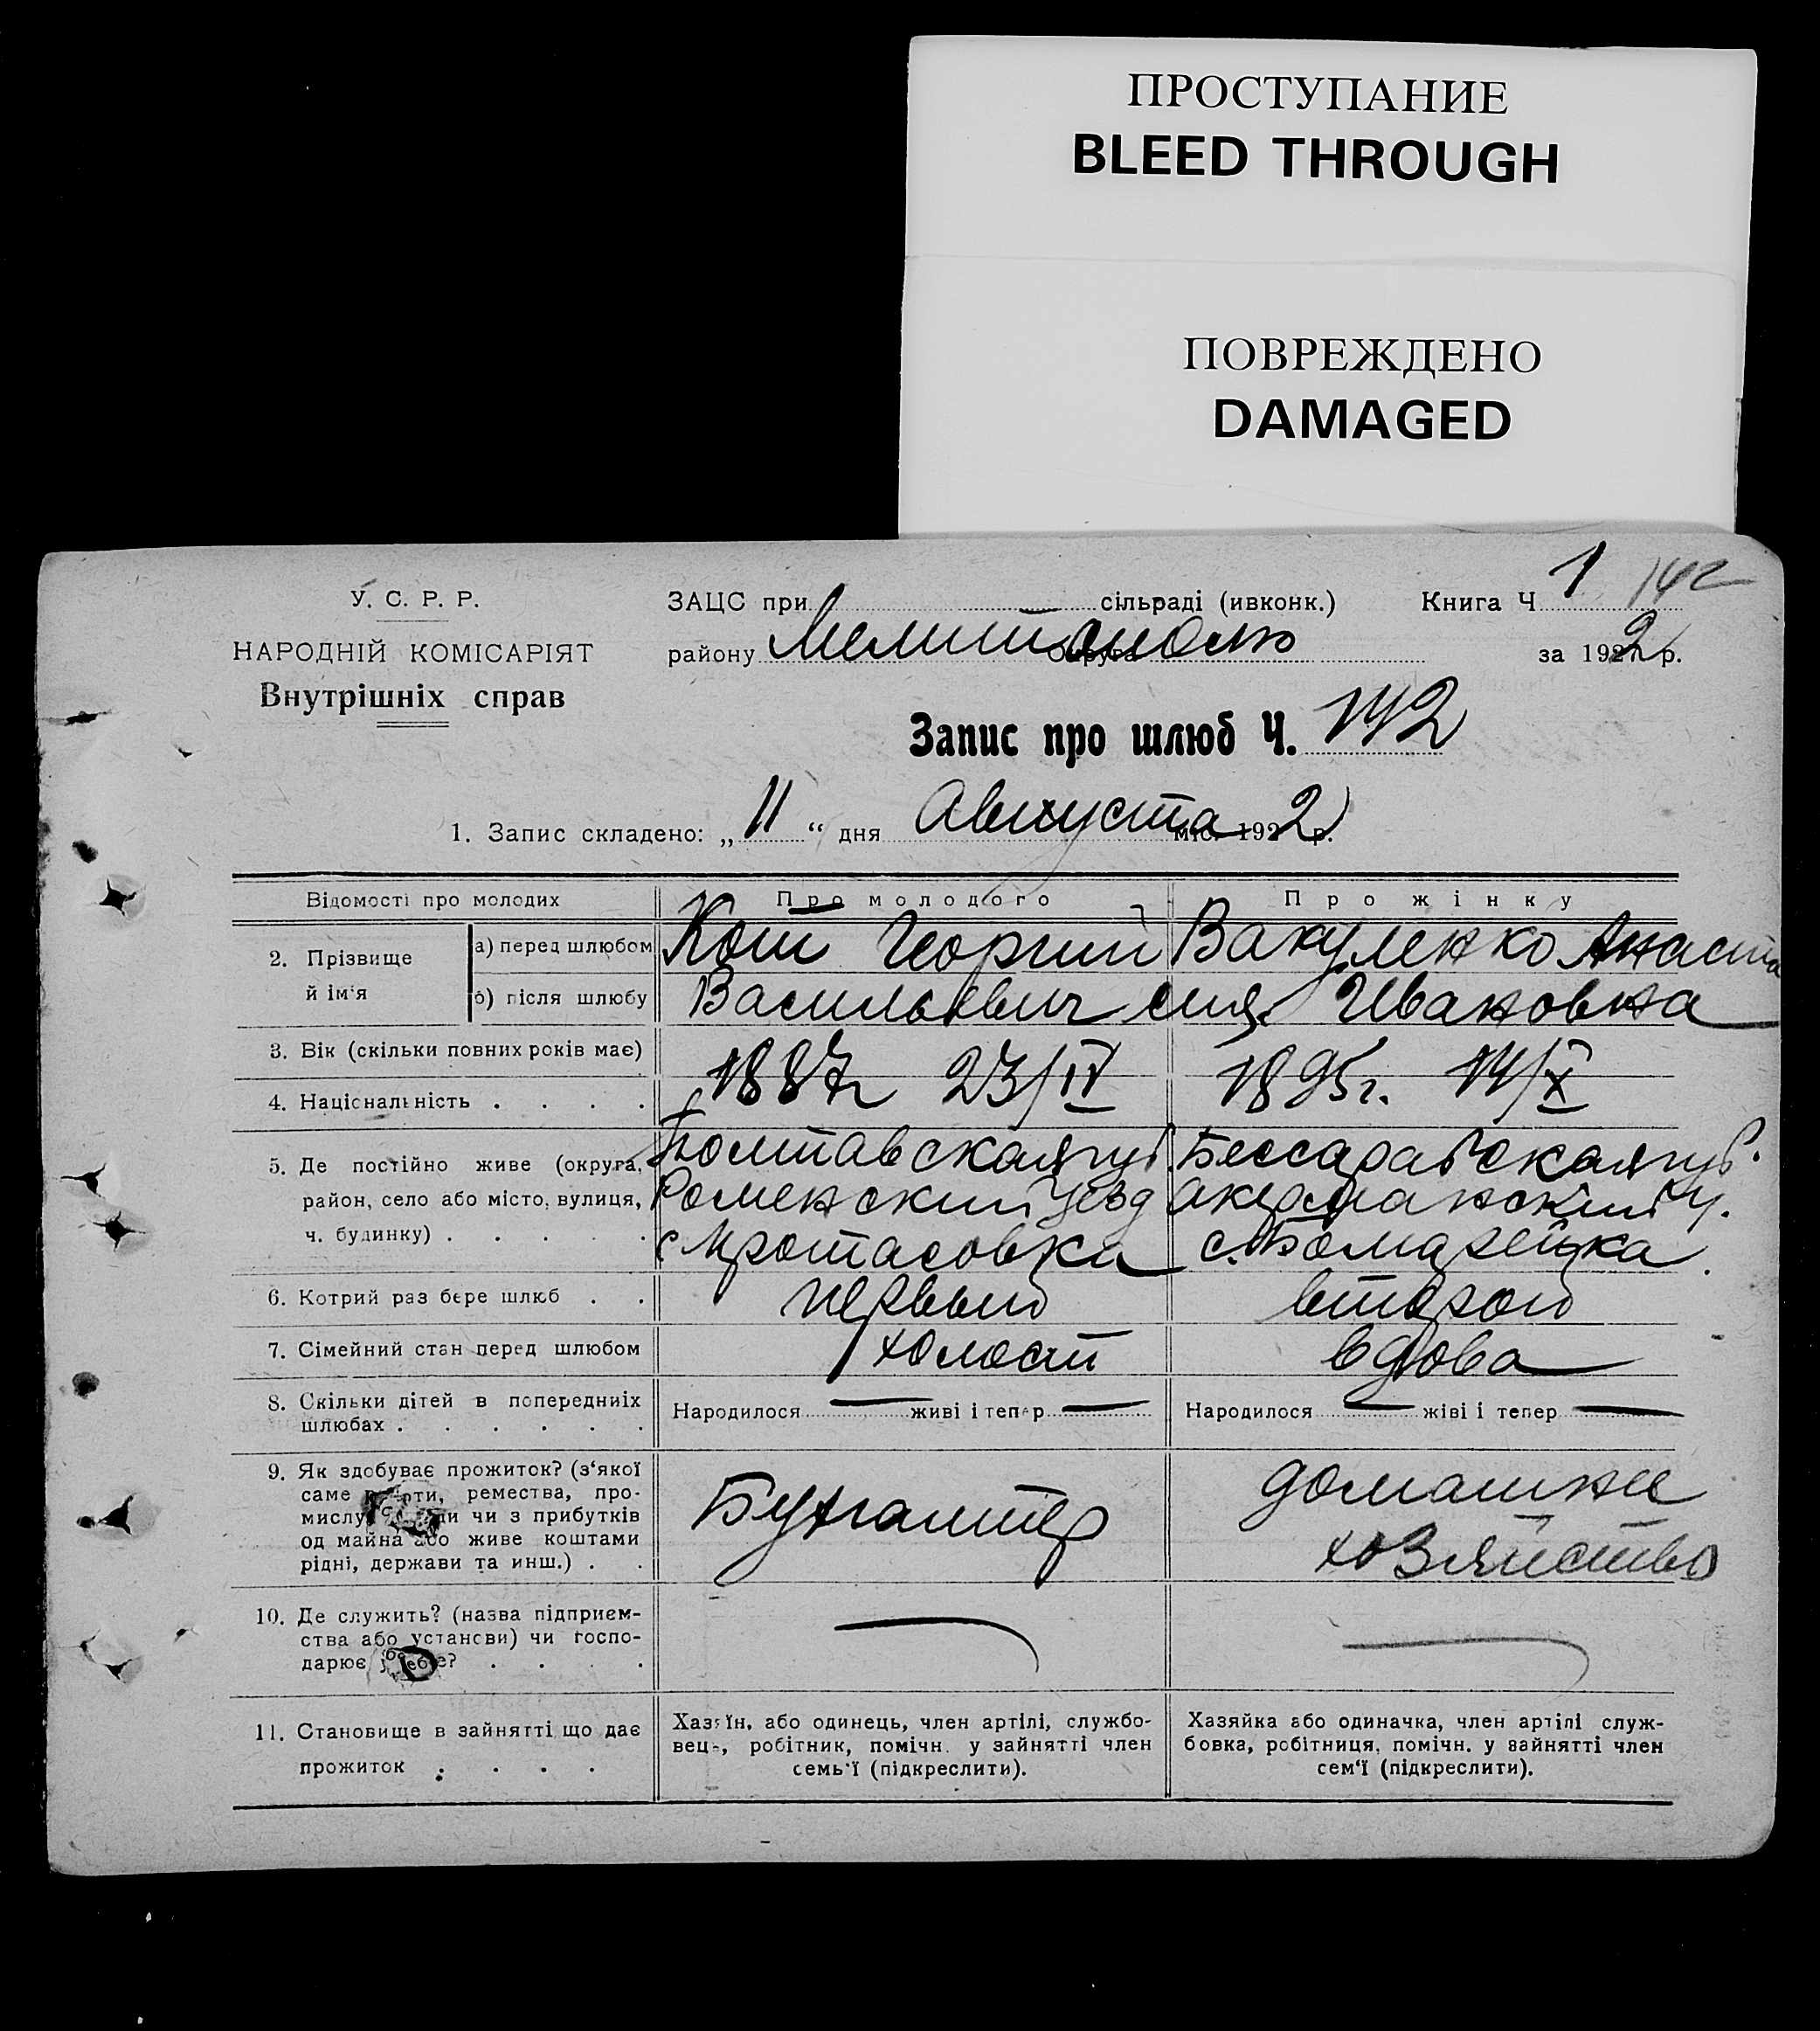 ПРОСТУПАНИЕ
BLEED THROUGH
ПОВРЕЖДЕНО
DAMAGED
У. С. Р. Р.
НАРОДНІЙ КОМІСАРІЯТ
Внутрішніх справ
ЗАЦС при сільраді (ивконк.) Книга Ч 1 142
району Мелитополю Округа за 1922 р.
Запис про шлюб Ч. 142
1. Запис складено: „11“ дня Августа міс. 1922 р.
Відомості про молодих Про молодого Про жінку
2. Прізвище й ім'я
а) перед шлюбом Кот Георгий Вакуленко Анаста
б) після шлюбу Васильевич сия Ивановна
3. Вік (скільки повних років має) 1887г 23/IV 1895г. 14/X
4. Національність . . . .
5. Де постійно живе (округа, Полтавская губ. Бессарабская губ.
район, село або місто, вулиця, Роменский уезд Акерманский у.
ч. будинку) . . . . . с Протасовка с.
6. Котрий раз бере шлюб . . первый второй
7. Сімейний стан перед шлюбом холост вдова
8. Скільки дітей в попередниіх Народилося — живі і тепер — Народилося — жіві і тепер —
шлюбах . . . . . .
9. Як здобуває прожиток? (з'якої
саме ти, ремества, про-
мислу чи з прибутків
од майна або живе коштами
рідні, держави та инш.) . .
Бухгалтер
домашнее
хозяйство
10. Де служить? (назва підприєм-
ства або установи) чи госпо-
дарює
— —
11. Становище в зайнятті що дає
прожиток . . . .
Хазяїн, або одинець, член артілі, службо-
вець, робітник, помічн. у зайнятті член
семь'ї (підкреслити).
Хазяйка або одиначка, член артілі служ-
бовка, робітниця, помічн. у зайнятті член
сем'ї (підкреслити).